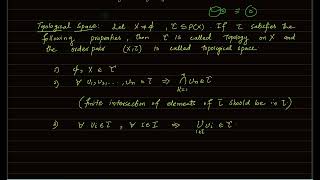 Topological Space: Let X ≠ φ, τ ⊆ P(X) If τ satisfies the
following properties, then τ is called Topology on X and
the order pair (X, τ) is called topological space
1) φ, X ∈ τ
2) ∀ U₁, U₂, ..., Uₙ ∈ τ ⇒ ∩ Uₙ ∈ τ
(finite intersection of elements of τ should be in τ)
3) ∀ Uᵢ ∈ τ, ∀ i ∈ I ⇒ ∪ Uᵢ ∈ τ
i∈I